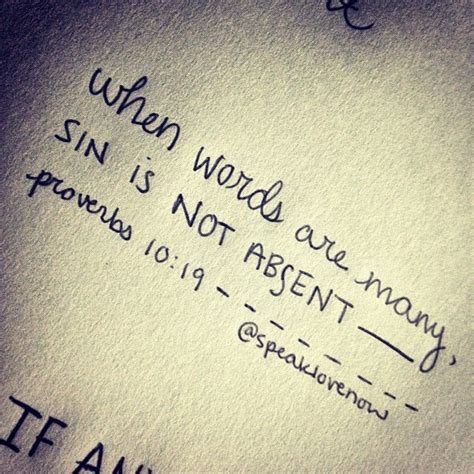 when words are many,
SIN is NOT ABSENT
proverbs 10:19
@speaklovenow
IF